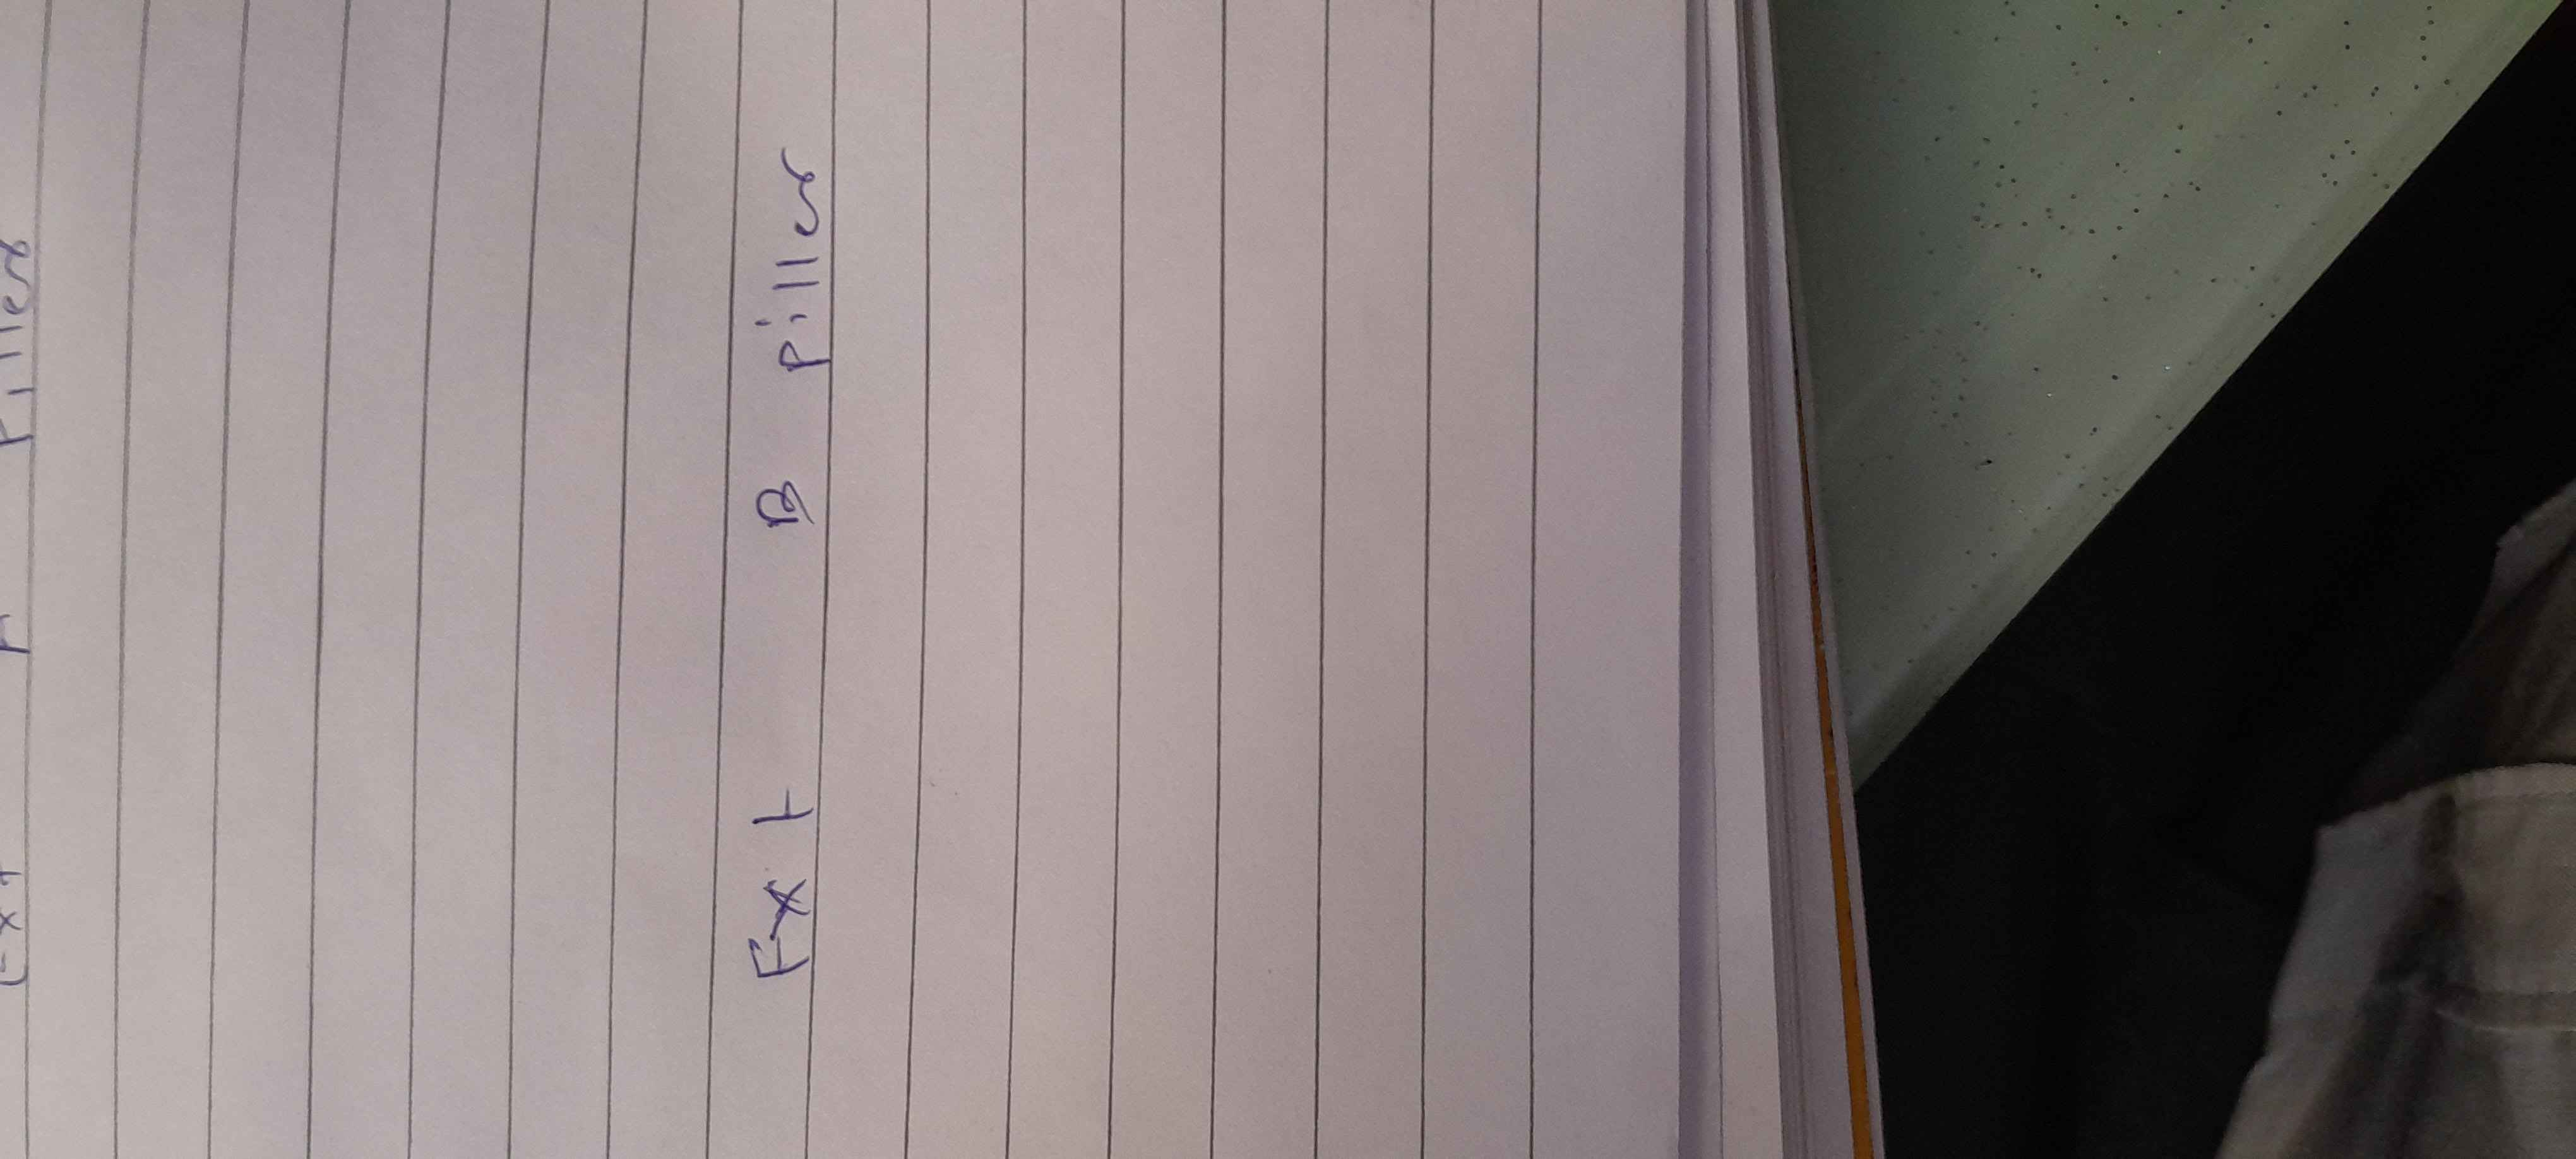 Ext piller
Ext B piller